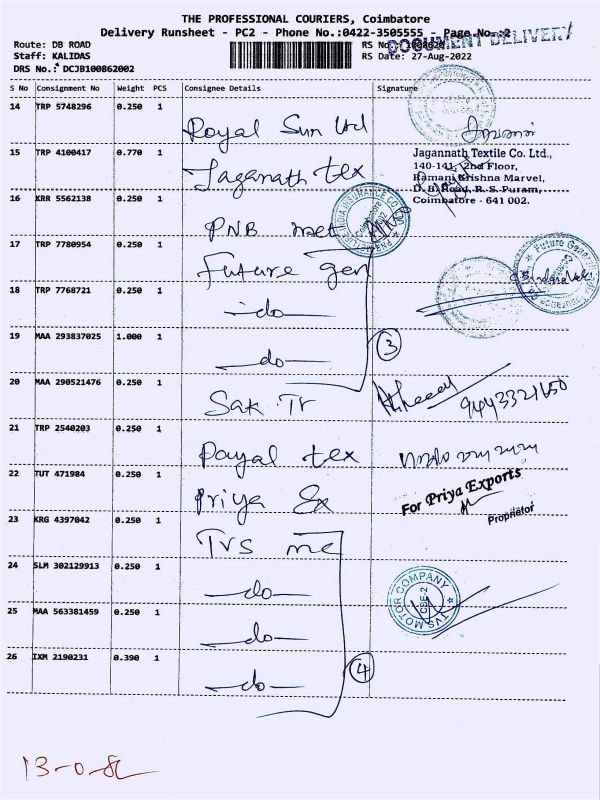 THE PROFESSIONAL COURIERS, Coimbatore
Delivery Runsheet - PC2 - Phone No.:0422-3505555 - Page No.:2
DOCUMENT DELIVERY
Route: DB ROAD
RS No.:
Staff: KALIDAS
RS Date: 27-Aug-2022
DRS No.: DCJB100862002
S No Consignment No Weight PCS Consignee Details Signature
14 TRP 5748296 0.250 1 Royal Sun Ltd
15 TRP 4100417 0.770 1 Jaganath tex
Jagannath Textile Co. Ltd.,
140-141, 2nd Floor,
Ramani Krishna Marvel,
D. B. Road, R. S. Puram,
Coimbatore - 641 002.
16 KRR 5562138 0.250 1 PNB met
17 TRP 7780954 0.250 1 Future gen
18 TRP 7768721 0.250 1 -do-
19 MAA 293837025 1.000 1 -do-
3
20 MAA 290521476 0.250 1 Sak Tr 9443321650
21 TRP 2540203 0.250 1 Royal tex
22 TUT 471984 0.250 1 Priya Ex
For Priya Exports
Proprietor
23 KRG 4397042 0.250 1 TVS me
24 SLM 302129913 0.250 1 -do-
TVS MOTOR COMPANY
CBE-2
25 MAA 563381459 0.250 1 -do-
26 IXM 2190231 0.390 1 -do-
4